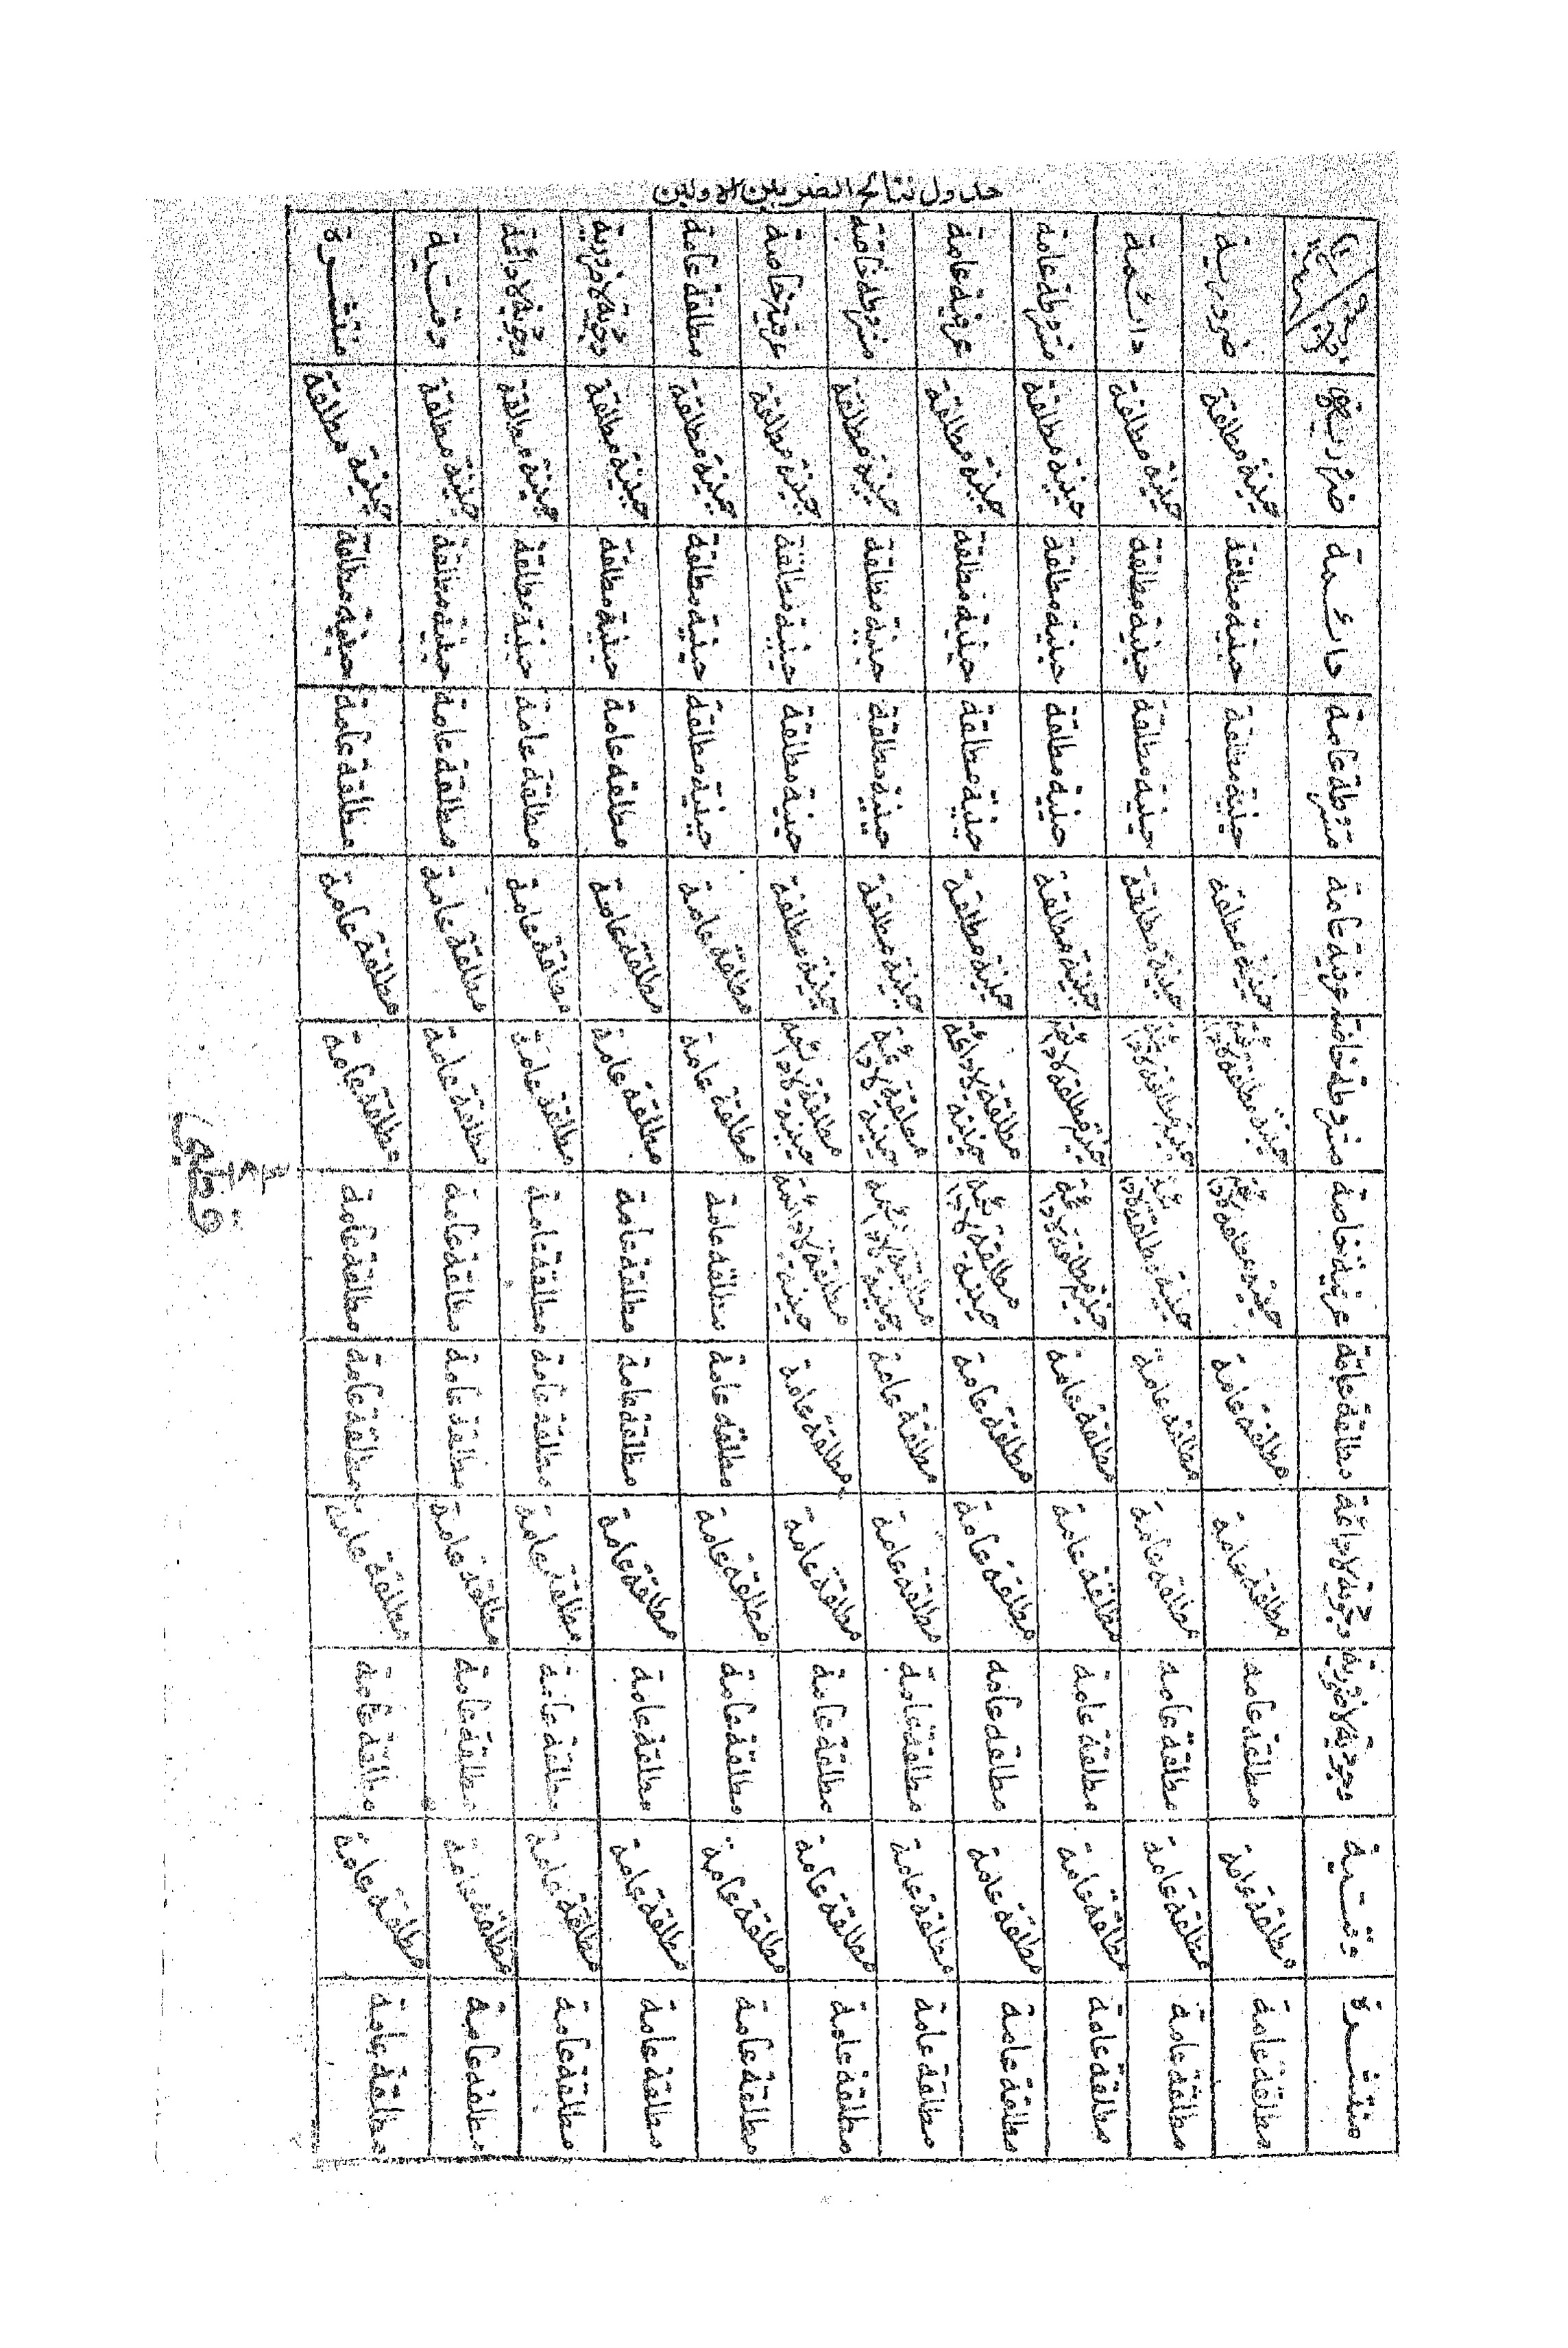 جدول نتائج الضربين الاولين
ضرورية دائمة مشروطة عامة عرفية عامة مشروطة خاصة عرفية خاصة مطلقة عامة وجودية لاضرورية وجودية لادائمة وقتية منتشرة
ضرورية حينية مطلقة حينية مطلقة حينية مطلقة حينية مطلقة حينية مطلقة حينية مطلقة حينية مطلقة حينية مطلقة حينية مطلقة حينية مطلقة حينية مطلقة
دائمة حينية مطلقة حينية مطلقة حينية مطلقة حينية مطلقة حينية مطلقة حينية مطلقة حينية مطلقة حينية مطلقة حينية مطلقة حينية مطلقة حينية مطلقة
مشروطة عامة حينية مطلقة حينية مطلقة حينية مطلقة حينية مطلقة حينية مطلقة حينية مطلقة حينية مطلقة مطلقة عامة مطلقة عامة مطلقة عامة مطلقة عامة
عرفية عامة حينية مطلقة حينية مطلقة حينية مطلقة حينية مطلقة حينية مطلقة حينية مطلقة مطلقة عامة مطلقة عامة مطلقة عامة مطلقة عامة مطلقة عامة
مشروطة خاصة حينية مطلقة لادائمة حينية مطلقة لادائمة حينية مطلقة لادائمة حينية مطلقة لادائمة حينية مطلقة لادائمة حينية مطلقة لادائمة مطلقة عامة مطلقة عامة مطلقة عامة مطلقة عامة مطلقة عامة
عرفية خاصة حينية مطلقة لادائمة حينية مطلقة لادائمة حينية مطلقة لادائمة حينية مطلقة لادائمة حينية مطلقة لادائمة حينية مطلقة لادائمة مطلقة عامة مطلقة عامة مطلقة عامة مطلقة عامة مطلقة عامة
مطلقة عامة مطلقة عامة مطلقة عامة مطلقة عامة مطلقة عامة مطلقة عامة مطلقة عامة مطلقة عامة مطلقة عامة مطلقة عامة مطلقة عامة مطلقة عامة
وجودية لادائمة مطلقة عامة مطلقة عامة مطلقة عامة مطلقة عامة مطلقة عامة مطلقة عامة مطلقة عامة مطلقة عامة مطلقة عامة مطلقة عامة مطلقة عامة
وجودية لاضرورية مطلقة عامة مطلقة عامة مطلقة عامة مطلقة عامة مطلقة عامة مطلقة عامة مطلقة عامة مطلقة عامة مطلقة عامة مطلقة عامة مطلقة عامة
وقتية مطلقة عامة مطلقة عامة مطلقة عامة مطلقة عامة مطلقة عامة مطلقة عامة مطلقة عامة مطلقة عامة مطلقة عامة مطلقة عامة مطلقة عامة
منتشرة مطلقة عامة مطلقة عامة مطلقة عامة مطلقة عامة مطلقة عامة مطلقة عامة مطلقة عامة مطلقة عامة مطلقة عامة مطلقة عامة مطلقة عامة